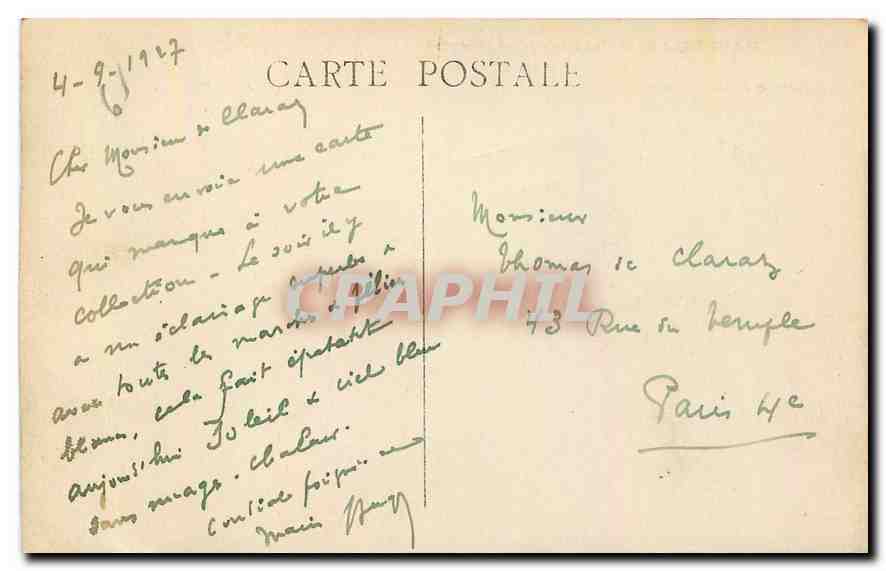 4-9-1927
CARTE POSTALE
Cher Monsieur de Claraz
Je vous envoie une carte
qui manque à votre
collection - Le soir il y
a un éclairage superbe &
avec toutes les
blanc, cela fait épatant
aujourd'hui Soleil & ciel bleu
sans nuage. Chaleur.
Cordiale poignée de
main
Monsieur
Thomas de Claraz
73 Rue du Temple
Paris 4e
CPAPHIL